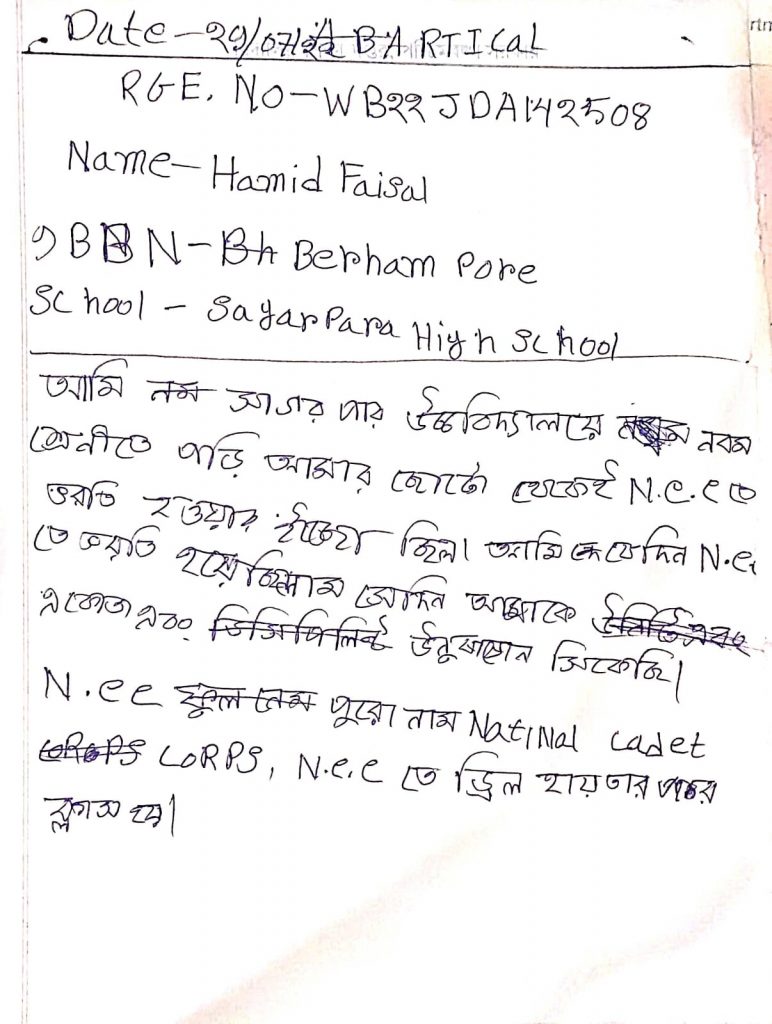 Date-29/07/22 BA RTICal
RGE. No-WB22JDA142508
Name-Hamid Faisal
9 BN-Bh Berham Pore
School - SagarPara High School
আমি নম সাগর পার উচ্চবিদ্যালয়ে নবম
শ্রেনীতে পড়ি আমার ছোটো থেকেই N.C.C তে
ভরতি হওয়ার ইচ্ছো ছিল। আমি যেদিন N.C.
তে ভরতি হয়েছিলাম সেদিন আমাকে
একোতা এবং ডিসিপিলিন্ট সিকেছি।
N.CC স্কুল নেম পুরো নাম NatiNal Cadet
CORPS CORPS, N.C.C তে ড্রিল হায় তার পরে
ক্লাস হয়।